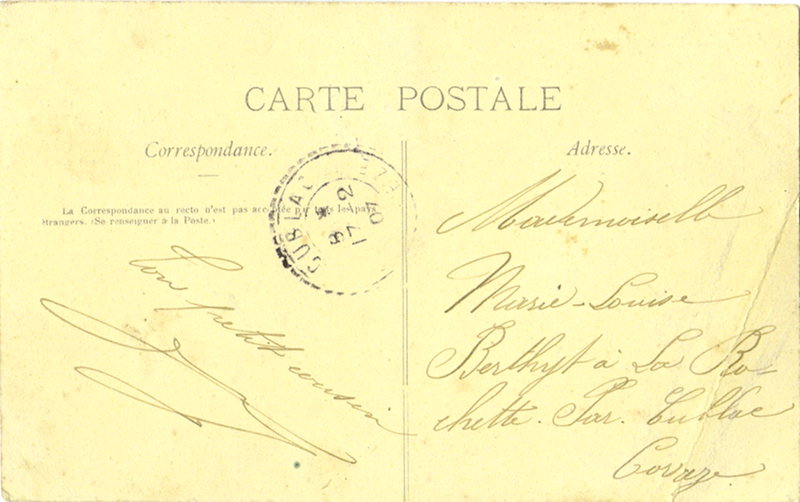 CARTE POSTALE
Correspondance.
La Correspondance au recto n'est pas acceptée par tous les pays
étrangers. (Se renseigner à la Poste.)
CUBLAC
Ton petit cousin
Adresse.
Mademoiselle
Marie-Louise
Berthyt à La Ro-
chette. Par. Cublac
Corrèze.